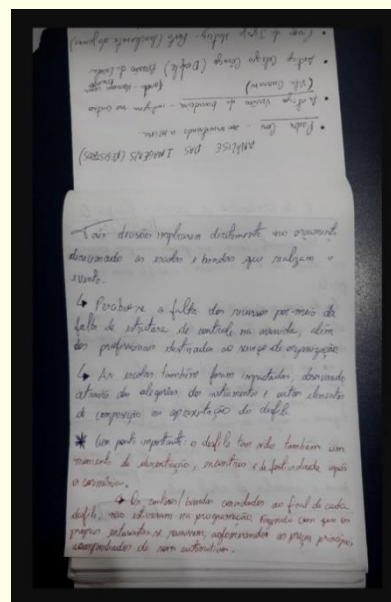 ANÁLISE DAS IMAGENS (REGISTROS)
Padre Coni - ser mostrando a cereia
Antigo Colégio Cônego (Desfile)
Tais decisões implicaram diretamente no orçamento
direcionado as escolas e bandas que realizam o
evento.
↳ Percebe-se a falta dos recursos por meio da
falta de estrutura de controle na avenida, além
dos profissionais destinados ao serviço de organização
↳ As escolas também foram impactadas,
através das alegorias, dos instrumentos e outros elementos
de composição na apresentação do desfile.
* Um ponto importante: o desfile tem sido também um
momento de descontração, encontros e de festividade após
a cerimônia.
↳ Os cantores/bandas convidados ao final de cada
desfile, não estiveram na programação. Fazendo com que os
próprios entusiastas se reunissem, aglomerando as praças principais
acompanhados de som automotivo.